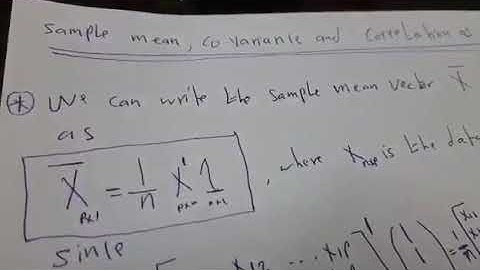 Sample mean, covariance and correlation as
* We can write the sample mean vector X̄
as
X̄ px1 = 1/n X' pxn 1 nx1 , where X nxp is the data
since
X12 ... X1p ]' ( 1 1 ) = 1/n [ X11